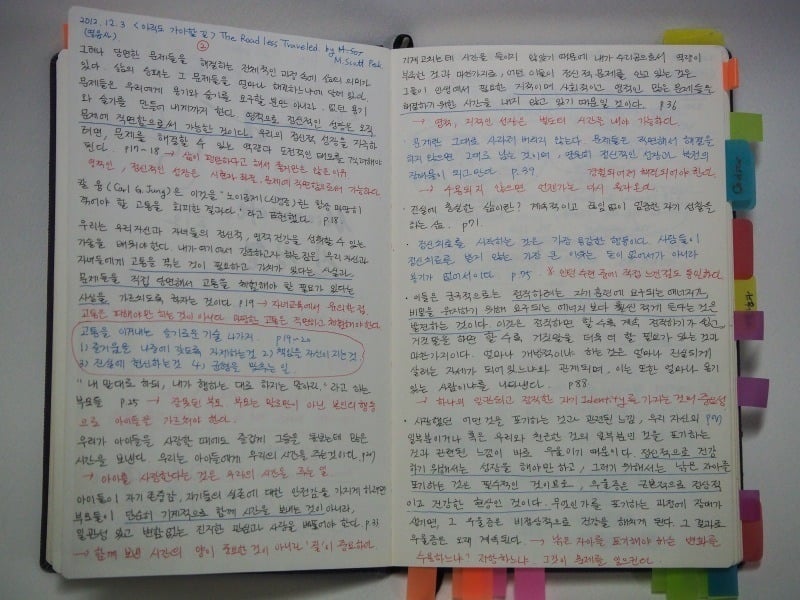 2012. 12. 3 <아직도 가야할 길> The Road less Traveled. by M. Scott Peck
(열음사)
②
그러나 당면한 문제들을 해결하는 전체적인 과정 속에 삶의 의미가
있다. 삶의 승패는 그 문제들을 얼마나 해결하느냐에 달려 있다.
문제들은 우리에게 용기와 슬기를 요구할 뿐만 아니라 없던 용기
와 슬기를 만들어 내게까지 한다. 영적으로 정신적인 성장은 오직
문제에 직면함으로써 가능한 것이다. 우리의 정신적 성장을 지속하
려면, 문제를 해결할 수 있는 역량과 도전적인 태도를 격려해야
한다. p17~18 → 삶이 평탄하다고 해서 좋지만은 않은 이유
영적인, 정신적인 성장은 시련과 좌절, 문제에 직면함으로써 가능하다
칼 융 (Carl G. Jung)은 이것을 "노이로제(신경증)란 항상 마땅히
겪어야 할 고통을 회피한 결과다." 라고 표현했다. p18.
우리는 우리 자신과 자녀들의 정신적, 영적 건강을 성취할 수 있는
기술을 배워야 한다. 내가 여기에서 강조하고자 하는 점은, 우리 자신과
자녀들에게 고통을 겪는 것이 필요하고 가치가 있다는 사실과,
문제들을 직접 당면해서 고통을 체험해야 할 필요가 있다는
사실을, 가르치도록 하자는 것이다 p19 → 자녀교육에서 유의할 점.
고통은 피해야만 하는 것이 아니다. 마땅한 고통은 직면하고 체험해야한다
고통을 이겨내는 슬기로운 기술 4가지. p19~20
1) 즐거움을 나중에 갖도록 자제하는 것 2) 책임을 자신이 지는 것
3) 진실에 헌신하는 것 4) 균형을 맞추는 일.
"내 말대로 하되, 내가 행하는 대로 하지는 말아라." 라고 하는
부모들 p25 → 잘못된 부모. 부모는 말으로만이 아닌 본인의 행동
으로 아이들을 가르쳐야 한다.
우리가 아이들을 사랑할 때에도 즐겁게 그들을 돌보는데 많은
시간을 보낸다. 우리는 아이들에게 우리의 시간을 주는 것이다.
→ 아이를 사랑한다는 것은 우리의 시간을 주는 일.
아이들이 자기 존중감, 자기들의 실존에 대한 안전감을 가지게 하려면
부모들이 단순히 기계적으로 함께 시간을 보내는 것이 아니라,
일관성 있고 변함 없는 진지한 관심과 사랑을 베풀어야 한다. p33
→ 함께 보낸 시간의 양이 중요한 것이 아니라 '질'이 중요하다.
기계 고치는데 시간을 들이지 않았기 때문에 내가 수리공으로서 역량이
부족한 것과 마찬가지로, 어떤 이들이 정신적 문제를 안고 있는 것은
그들이 인생에서 필요한 지적이며 사회적이고 영적인 많은 문제들을
해결하기 위한 시간을 내지 않고 있기 때문일 것이다. p36
→ 영적, 지적인 성장은 별도의 시간을 내야 가능하다.
· 문제란 그대로 사라져 버리지 않는다. 문제들은 직면해서 해결을
하지 않으면 그대로 남는 것이며, 영원히 정신적인 성장과 발전의
장애물이 되고 만다. p.39 경험되어야 해결되어야 한다.
→ 수용되지 않으면 언젠가는 다시 올라온다.
· 진실에 충실한 삶이란? 계속적이고 끊임 없이 엄중한 자기 성찰을
하는 삶. p71.
· 정신치료를 시작하는 것은 가장 용감한 행동이다. 사람들이
정신치료를 받지 않는 가장 큰 이유는 돈이 없어서가 아니라
용기가 없어서이다 p75 ※ 인턴 수련 중에 직접 느낀 점도 동일하다.
· 이들은 궁극적으로는 정직하려는 자기 훈련에 요구되는 에너지가,
비밀을 유지하기 위해 요구되는 에너지 보다 훨씬 적게 든다는 것을
발견하는 것이다. 이것은 정직하면 할 수록 계속 정직하기가 쉽고,
거짓말을 하면 할 수록 거짓말을 더욱 더 할 필요가 있는 것과
마찬가지다. 얼마나 개방적이냐 하는 것은 얼마나 진실되게
살려는 자세가 되어 있느냐와 관계되며, 이는 또한 얼마나 용기
있는 사람이냐를 나타낸다. p88.
→ 하나의 일관되고 정직한 자기 Identity를 가지는 것의 중요성
· 사랑했던 어떤 것을 포기하는 것과 관련된 느낌, 우리 자신의
일부분이거나 혹은 우리와 친근한 것의 일부분인 것을 포기하는
것과 관련된 느낌이 바로 우울이기 때문이다. 정신적으로 건강
하기 위해서는 성장을 해야만 하고, 그러기 위해서는 낡은 자아를
포기하는 것은 필수적인 것이므로, 우울증은 근본적으로 정상적
이고 건강한 현상인 것이다. 무엇인가를 포기하는 과정에 장애가
생기면, 그 우울증은 비정상적으로 건강을 해치게 된다. 그 결과로
우울증은 오래 계속된다. → 낡은 자아를 포기해야 하는 변화를
수용하느냐? 저항하느냐. 그것이 문제를 일으킨다.